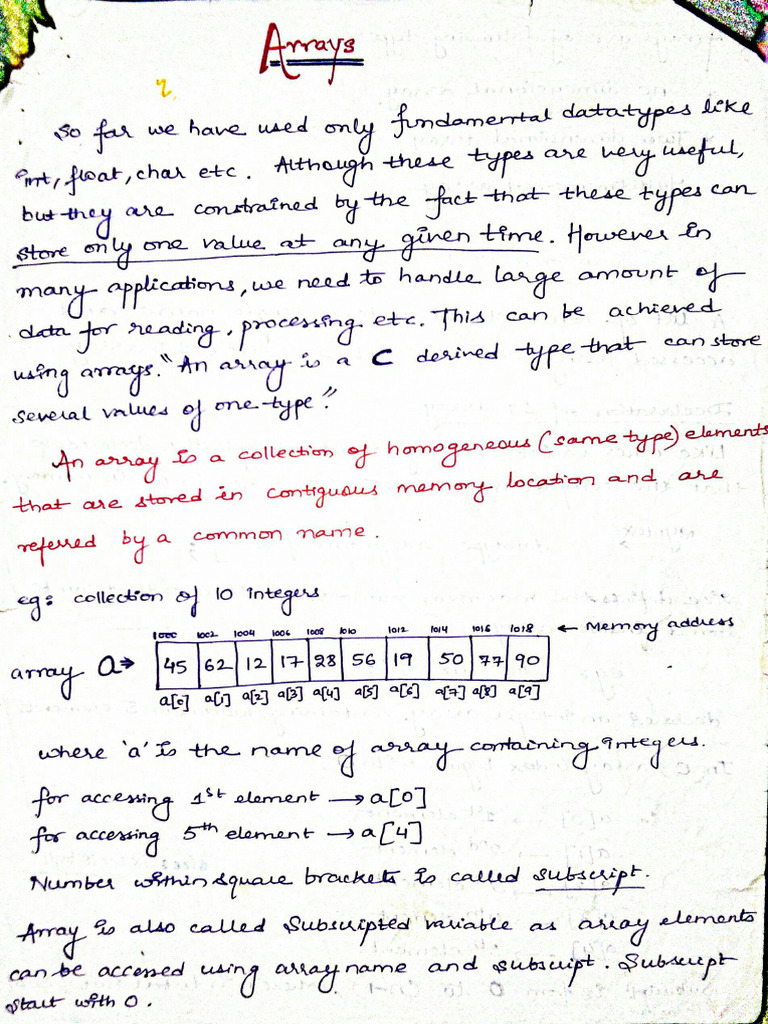 Arrays
2.
So far we have used only fundamental datatypes like
int, float, char etc. Although these types are very useful,
but they are constrained by the fact that these types can
store only one value at any given time. However in
many applications, we need to handle large amount of
data for reading, processing etc. This can be achieved
using arrays. "An array is a C derived type that can store
several values of one type".
An array is a collection of homogeneous (same type) elements
that are stored in contiguous memory location and are
referred by a common name.
eg: collection of 10 integers
1000 1002 1004 1006 1008 1010 1012 1014 1016 1018 ← Memory address
array a⇒ 45 62 12 17 28 56 19 50 77 90
a[0] a[1] a[2] a[3] a[4] a[5] a[6] a[7] a[8] a[9]
where 'a' is the name of array containing integers.
for accessing 1st element → a[0]
for accessing 5th element → a[4]
Number within square brackets is called subscript.
Array is also called Subscripted variable as array elements
can be accessed using array name and subscript. Subscript
start with 0.